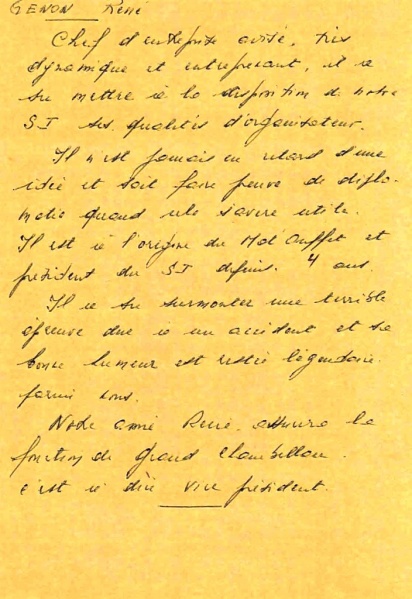 GENON René
Chef d'entreprise avisé, très
dynamique et entreprenant, il a
su mettre à la disposition de notre
S.I ses qualités d'organisateur.
Il n'est jamais en retard d'une
idée et sait faire preuve de diplo-
matie quand cela s'avère utile.
Il est à l'origine du
président du SI depuis 4 ans.
Il a su surmonter une terrible
épreuve due à un accident et sa
bonne humeur est restée légendaire
parmi nous.
Notre ami René assurera la
fonction de grand Chambellan
c'est à dire vice président.